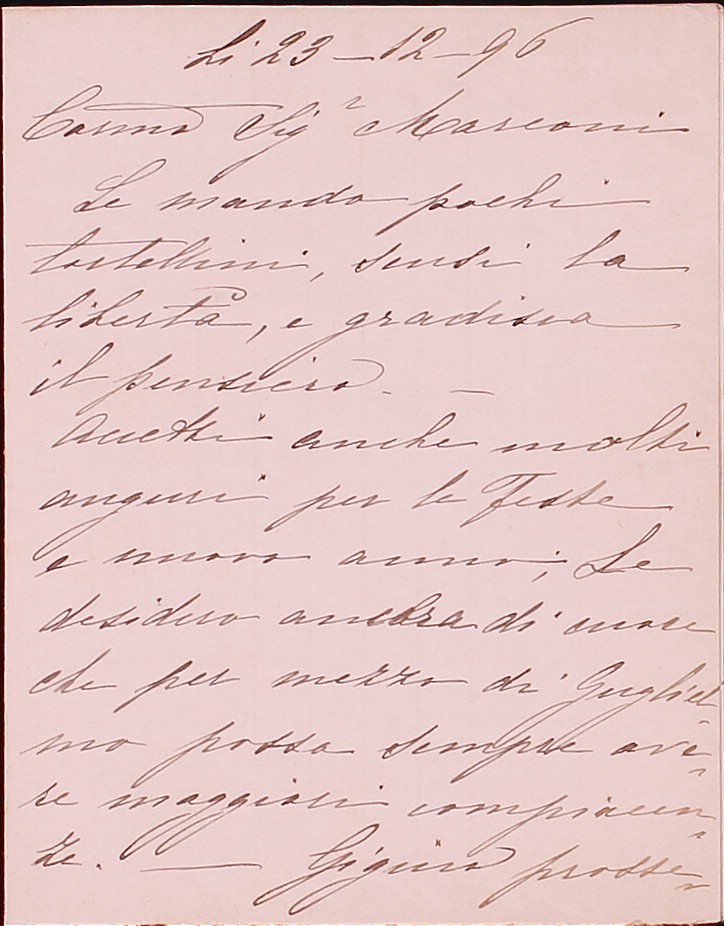 Li 23-12-96
Carmo Sigr Marconi
Le mando pochi
tortellini, scusi la
libertà, e gradisca
il pensiero. —
Accetti anche molti
auguri per le Feste
e nuovo anno; Le
desidero ancora di cuore
che per mezzo di Gugliel
mo possa sempre ave-
re maggiori compiacen-
ze. — Gigina prosse-